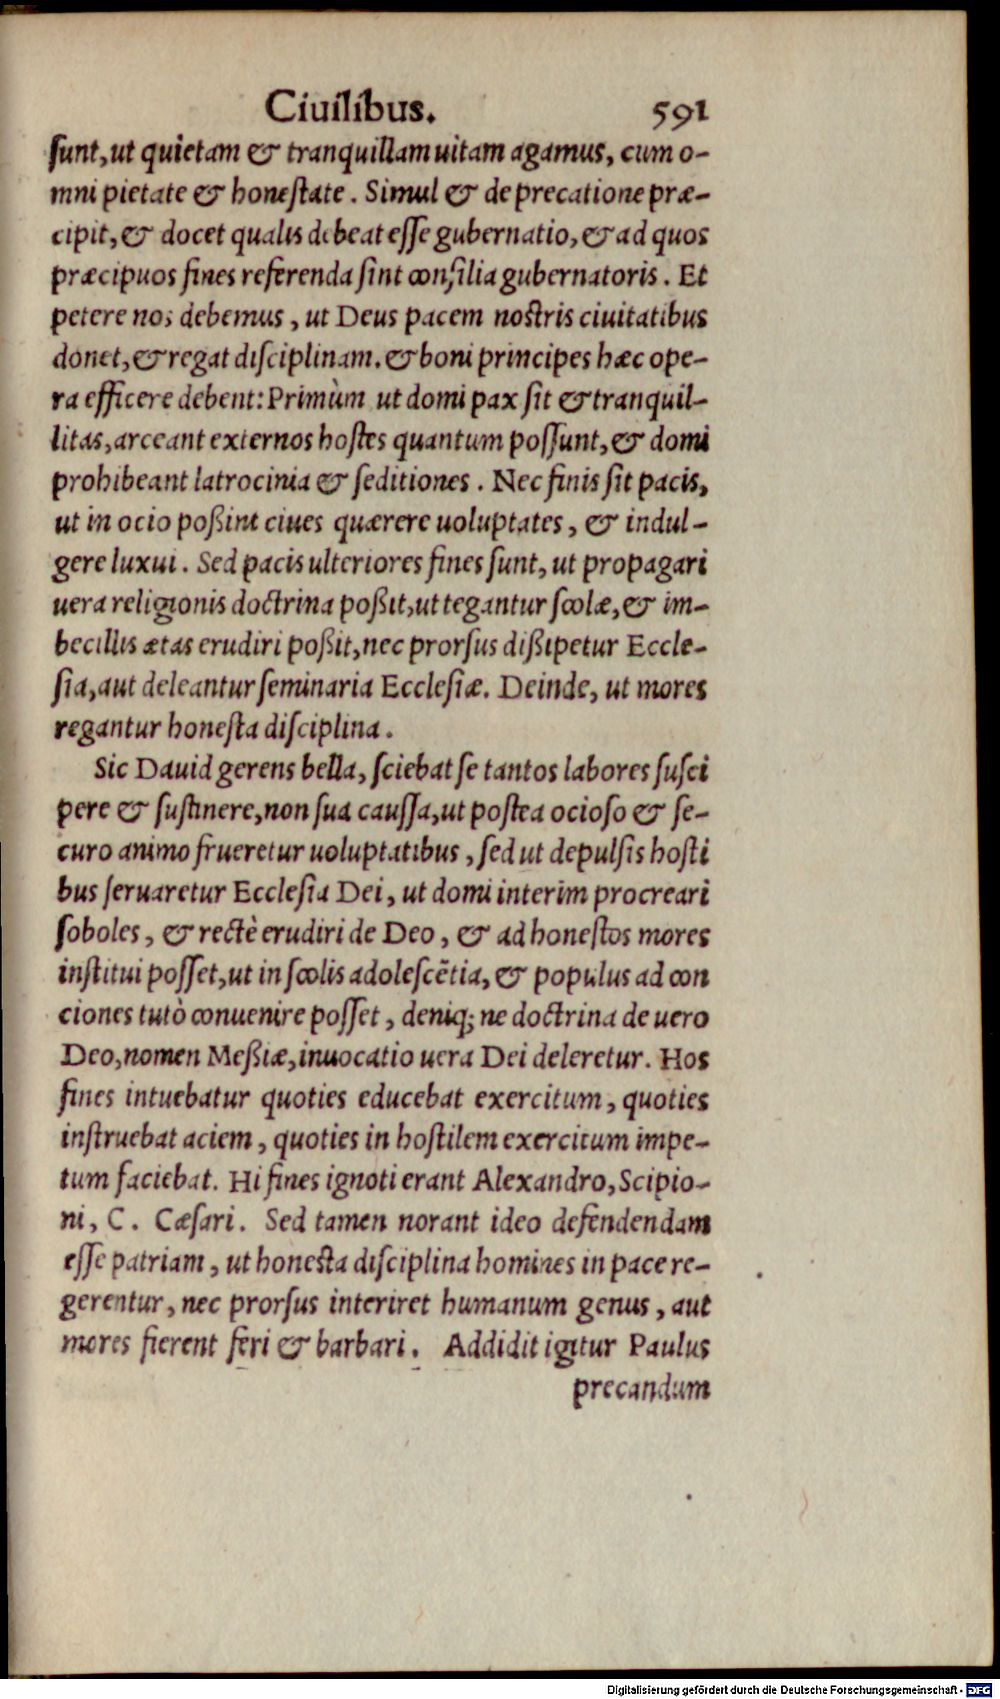 Ciuilibus. 591
ſunt, ut quietam & tranquillam uitam agamus, cum o-
mni pietate & honeſtate. Simul & de precatione præ-
cipit, & docet qualis debeat eſſe gubernatio, & ad quos
præcipuos fines referenda ſint conſilia gubernatoris. Et
petere nos debemus, ut Deus pacem noſtris ciuitatibus
donet, & regat diſciplinam. & boni principes hæc ope-
ra efficere debent: Primùm ut domi pax ſit & tranquil-
litas, arceant externos hoſtes quantum poſſunt, & domi
prohibeant latrocinia & ſeditiones. Nec finis ſit pacis,
ut in ocio poßint ciues quærere uoluptates, & indul-
gere luxui. Sed pacis ulteriores fines ſunt, ut propagari
uera religionis doctrina poßit, ut tegantur ſcolæ, & im-
becillis ætas erudiri poßit, nec prorſus dißipetur Eccle-
ſia, aut deleantur ſeminaria Eccleſiæ. Deinde, ut mores
regantur honeſta diſciplina.
Sic Dauid gerens bella, ſciebat ſe tantos labores ſuſci
pere & ſuſtinere, non ſua cauſſa, ut poſtea ocioſo & ſe-
curo animo frueretur uoluptatibus, ſed ut depulſis hoſti
bus ſeruaretur Eccleſia Dei, ut domi interim procreari
ſoboles, & rectè erudiri de Deo, & ad honeſtos mores
inſtitui poſſet, ut in ſcolis adoleſcẽtia, & populus ad con
ciones tutò conuenire poſſet, deniq; ne doctrina de uero
Deo, nomen Meßiæ, inuocatio uera Dei deleretur. Hos
fines intuebatur quoties educebat exercitum, quoties
inſtruebat aciem, quoties in hoſtilem exercitum impe-
tum faciebat. Hi fines ignoti erant Alexandro, Scipio-
ni, C. Cæſari. Sed tamen norant ideo defendendam
eſſe patriam, ut honeſta diſciplina homines in pace re-
gerentur, nec prorſus interiret humanum genus, aut
mores fierent feri & barbari. Addidit igitur Paulus
precandum
Digitalisierung gefördert durch die Deutsche Forschungsgemeinschaft - DFG